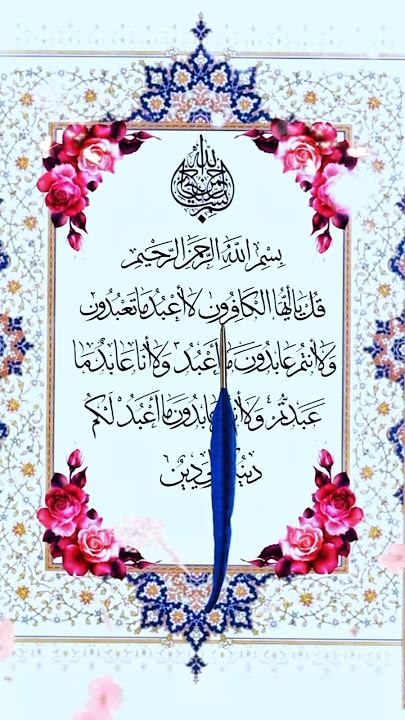 بسم الله الرحمن الرحيم
بِسْمِ اللهِ الرَّحْمَنِ الرَّحِيْمِ
قُلْ يَا أَيُّهَا الْكَافِرُونَ لَا أَعْبُدُ مَا تَعْبُدُونَ
وَلَا أَنْتُمْ عَابِدُونَ مَا أَعْبُدُ وَلَا أَنَا عَابِدٌ مَا
عَبَدْتُمْ وَلَا عَابِدُونَ مَا أَعْبُدُ لَكُمْ